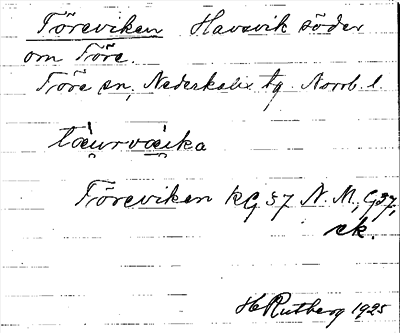 Töreviken Havsvik söder
om Töre.
Töre sn, Nederkalix tg. Norrb. l.
Töreviken KG 37 N. M., G37,
ek.
H Rutberg 1925